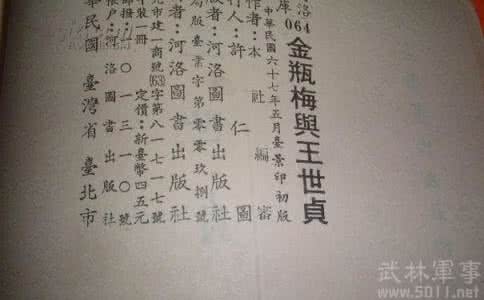 洛
庫064
金瓶梅與王世貞
中華民國六十七年五月臺景印初版
作者:本社編審
行人:許仁圖
版者:河洛圖書出版社
局版臺業字第零零玖捌號
者:河洛圖書出版社
市建一商號(63)字第八一七一七號
裝一冊 定價:新臺幣四五元
撥:一〇一三一〇號
帳戶:河洛圖書出版社
華民國 臺灣省 臺北市
武林軍事
www.5011.net